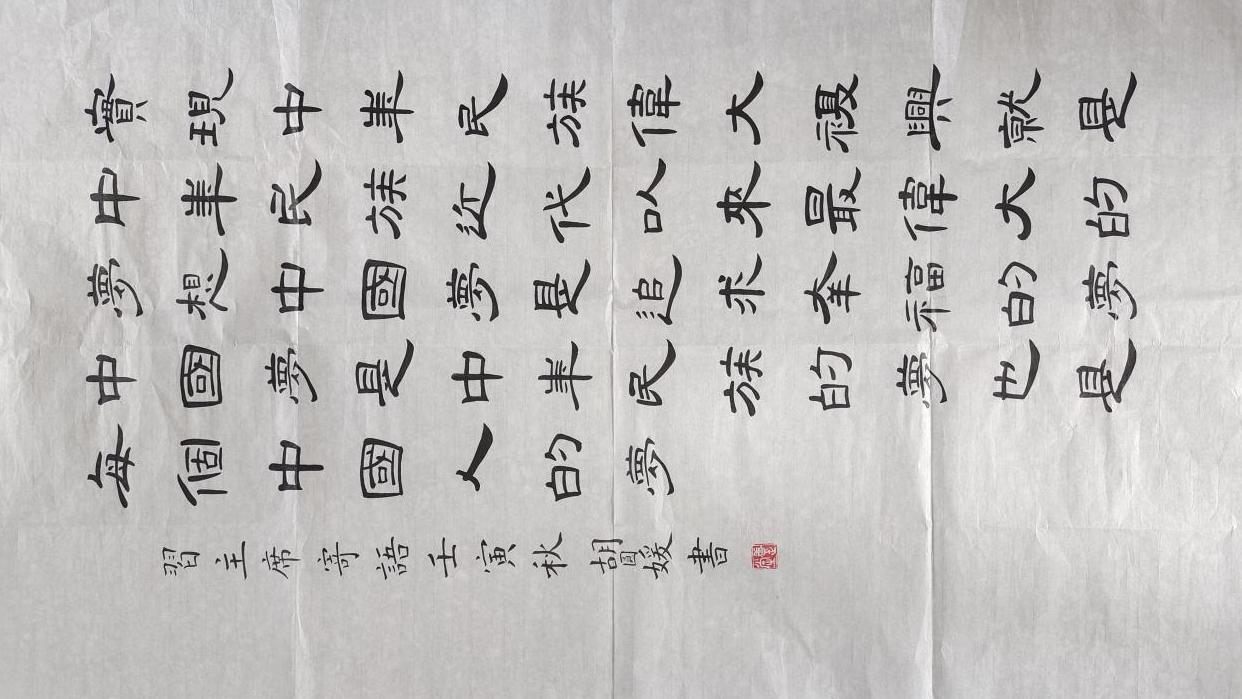 實現中華民族偉大複興就是
中華民族近代以來最偉大的
夢想中國夢是追求幸福的夢
中國夢是中華民族的夢也是
每個中國人的夢
習主席寄語壬寅秋胡媛書